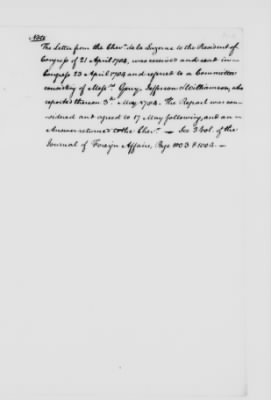 Note
The Letter from the Chevr. de la Luzerne to the President of
Congress of 21 April 1784, was received and sent in
Congress 23 April 1784 and referred to a Committee
consisting of Messrs. Gerry, Jefferson & Williamson, who
reported thereon 3d. May 1784. The Report was con-
sidered and agreed to 17 May following, and an
Answer returned to the Chevr. — See 3 Vol. of the
Journal of Foreign Affairs, Page 1003 & 1004. —